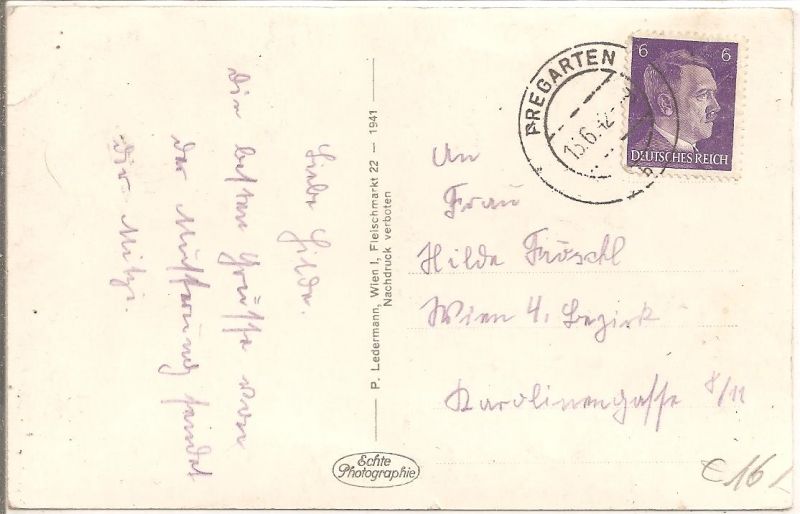 Liebe Hilde.
Die besten Grüsse von
der Musterung sendet
Dir Mitzi.
P. Ledermann, Wien I, Fleischmarkt 22 — 1941 —
Nachdruck verboten
Echte
Photographie
PREGARTEN
15.6.42
b
6 6
DEUTSCHES REICH
An
Frau
Hilde
Wien 4. Bezirk
Karolinengasse 8/11
€16